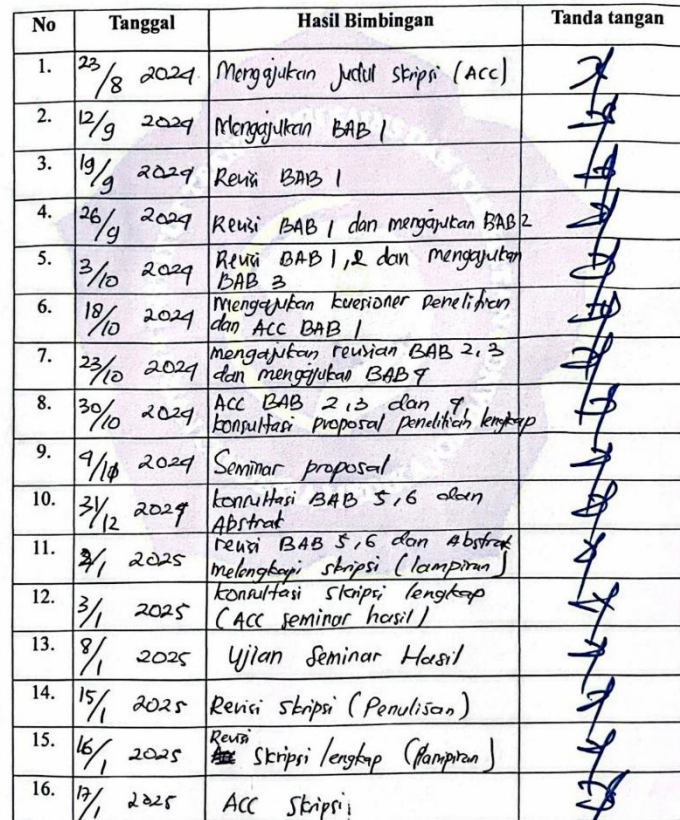 No Tanggal Hasil Bimbingan Tanda tangan
1. 23/8 2024 Mengajukan judul skripsi (ACC)
2. 12/9 2024 Mengajukan BAB 1
3. 19/9 2024 Revisi BAB 1
4. 26/9 2024 Revisi BAB 1 dan mengajukan BAB 2
5. 3/10 2024 Revisi BAB 1,2 dan mengajukan
BAB 3
6. 18/10 2024 Mengajukan kuesioner penelitian
dan ACC BAB 1
7. 23/10 2024 mengajukan revisian BAB 2,3
dan mengajukan BAB 4
8. 30/10 2024 ACC BAB 2,3 dan 4,
konsultasi proposal penelitian lengkap
9. 2024 Seminar proposal
10. 31/12 2024 konsultasi BAB 5,6 dan
Abstrak
11. 2/1 2025 revisi BAB 5,6 dan Abstrak
melengkapi skripsi (lampiran)
12. 3/1 2025 konsultasi skripsi lengkap
(ACC seminar hasil)
13. 8/1 2025 Ujian Seminar Hasil
14. 15/1 2025 Revisi skripsi (Penulisan)
15. 16/1 2025 Revisi skripsi lengkap (lampiran)
16. 17/1 2025 ACC skripsi